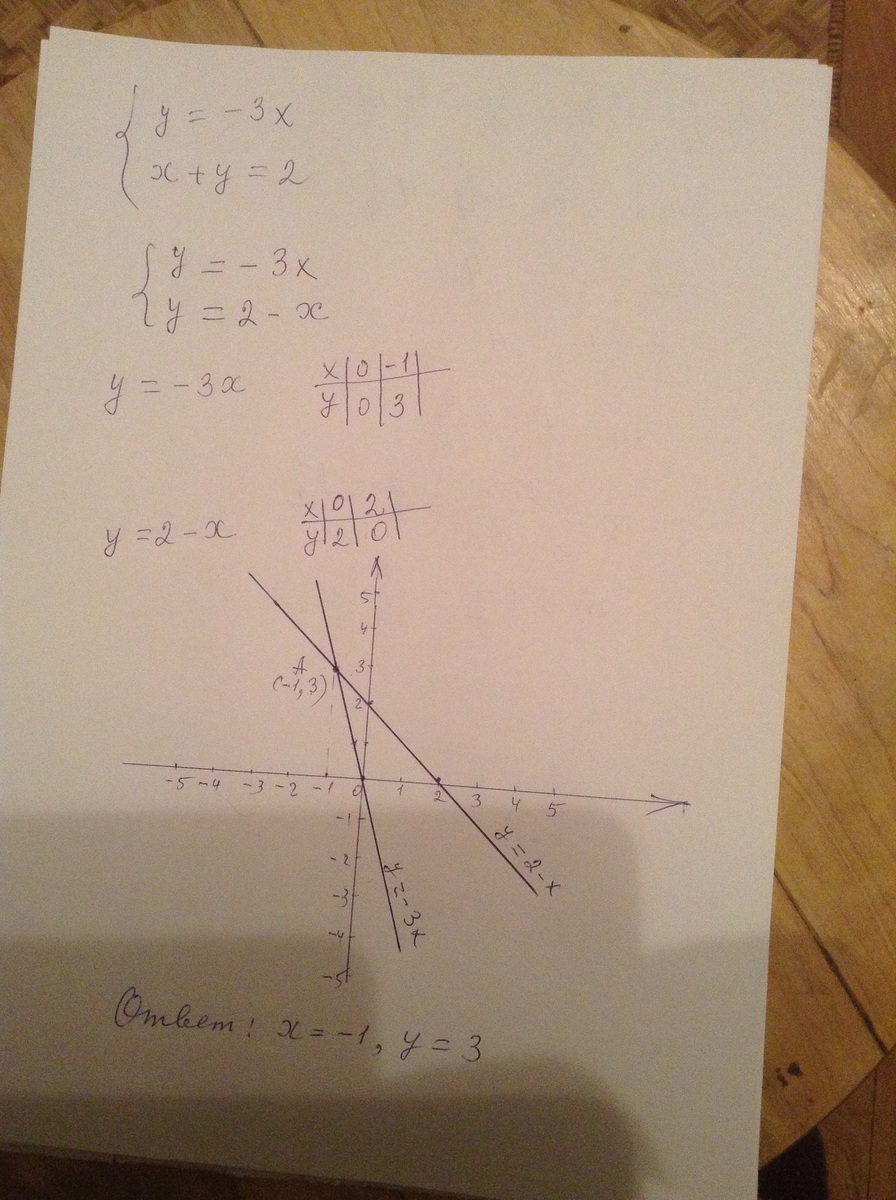 y = -3x
x + y = 2
y = -3x
y = 2 - x
y = -3x
x | 0 | -1 |
y | 0 | 3 |
y = 2 - x
x | 0 | 2 |
y | 2 | 0 |
5
4
A
3
(-1, 3)
2
1
-5 -4 -3 -2 -1 0 1 2 3 4 5
-1
-2
-3
-4
-5
y = 2 - x
y = -3x
Ответ: x = -1, y = 3